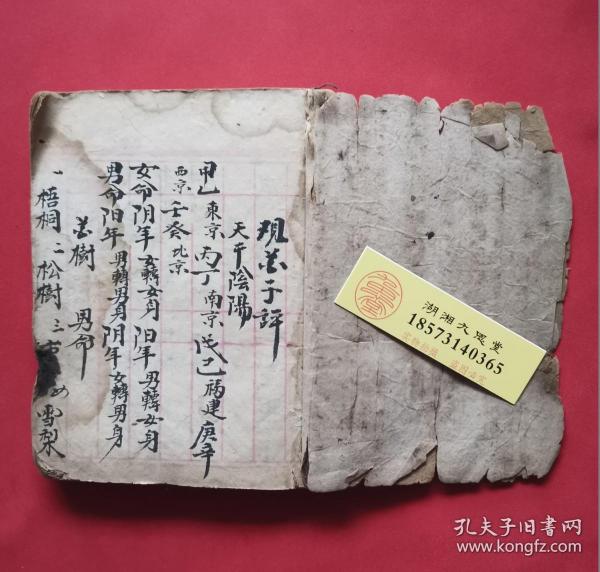 观花子評
天干陰陽
甲乙東京丙丁南京戊己福建庚辛
西京壬癸北京
女命阴年女轉女身阳年男轉女身
男命阳年男轉男身阴年女轉男身
花樹 男命
一梧桐二松樹三 四雪梨
湖湘大德堂
18573140365
孔夫子旧书网
www.kongfz.com